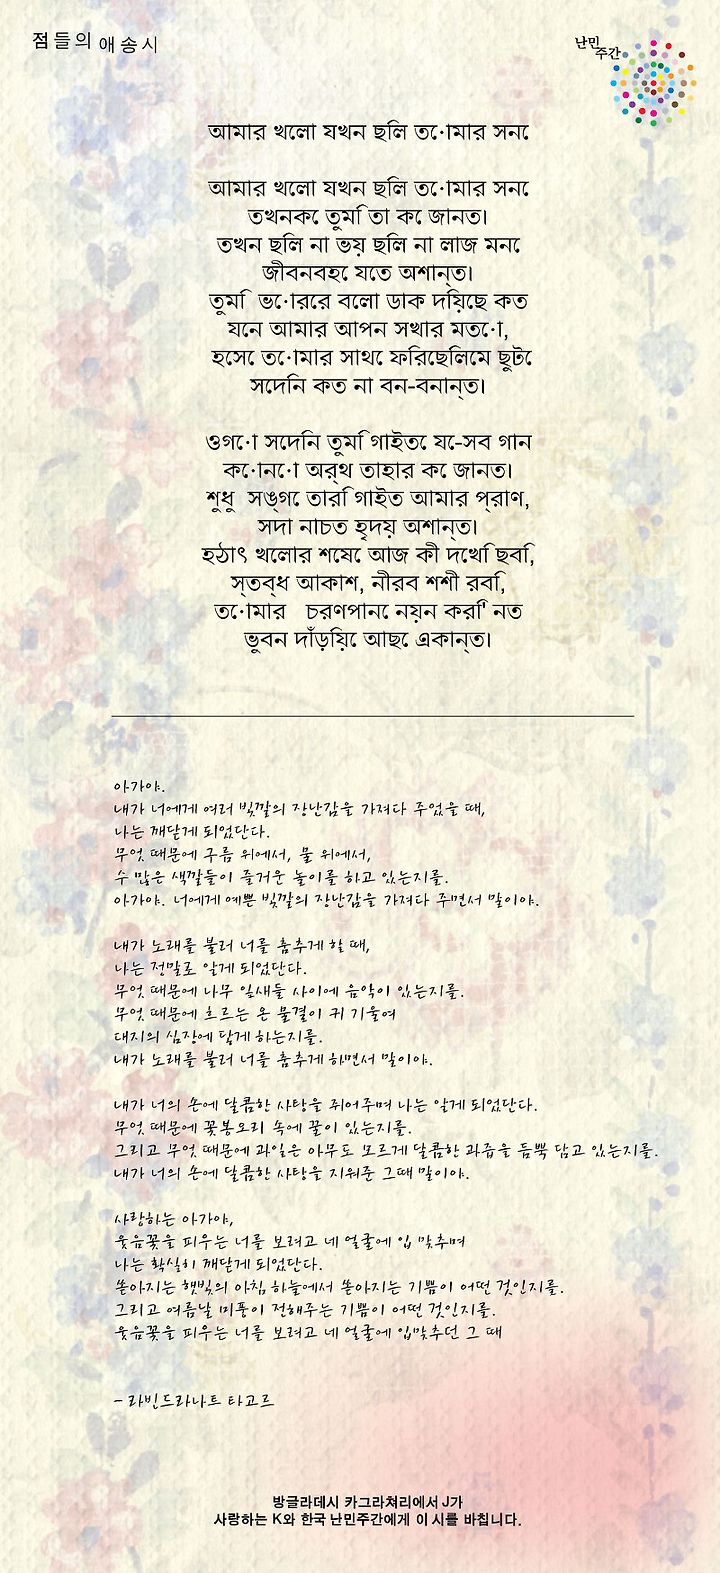 점들의 애송시
난민
주간
আমার খেলা যখন ছিল তোমার সনে
আমার খেলা যখন ছিল তোমার সনে
তখন কে তুমি তা কে জানত।
তখন ছিল না ভয় ছিল না লাজ মনে
জীবন বহে যেত অশান্ত।
তুমি ভোরের বেলা ডাক দিয়েছ কত
যেন আমার আপন সখার মতো,
হেসে তোমার সাথে ফিরেছিলেম ছুটে
সেদিন কত না বন-বনান্ত।
ওগো সেদিন তুমি গাইতে যে-সব গান
কোনো অর্থ তাহার কে জানত।
শুধু সঙ্গে তারি গাইত আমার প্রাণ,
সদা নাচত হৃদয় অশান্ত।
হঠাৎ খেলার শেষে আজ কী দেখি ছবি,
স্তব্ধ আকাশ, নীরব শশী রবি,
তোমার চরণপানে নয়ন করি' নত
ভুবন দাঁড়িয়ে আছে একান্ত।
아가야.
내가 너에게 여러 빛깔의 장난감을 가져다 주었을 때,
나는 깨닫게 되었단다.
무엇 때문에 구름 위에서, 물 위에서,
수 많은 색깔들이 즐거운 놀이를 하고 있는지를.
아가야. 너에게 예쁜 빛깔의 장난감을 가져다 주면서 말이야.
내가 노래를 불러 너를 춤추게 할 때,
나는 정말로 알게 되었단다.
무엇 때문에 나무 잎새들 사이에 음악이 있는지를.
무엇 때문에 흐르는 온 물결이 귀 기울여
대지의 심장에 닿게 하는지를.
내가 노래를 불러 너를 춤추게 하면서 말이야.
내가 너의 손에 달콤한 사탕을 쥐어주며 나는 알게 되었단다.
무엇 때문에 꽃봉오리 속에 꿀이 있는지를.
그리고 무엇 때문에 과일은 아무도 모르게 달콤한 과즙을 듬뿍 담고 있는지를.
내가 너의 손에 달콤한 사탕을 지워준 그때 말이야.
사랑하는 아가야,
웃음꽃을 피우는 너를 보려고 네 얼굴에 입 맞추며
나는 확실히 깨닫게 되었단다.
쏟아지는 햇빛의 아침 하늘에서 쏟아지는 기쁨이 어떤 것인지를.
그리고 여름날 미풍이 전해주는 기쁨이 어떤 것인지를.
웃음꽃을 피우는 너를 보려고 네 얼굴에 입맞추던 그 때
- 라빈드라나트 타고르
방글라데시 카그라쳐리에서 J가
사랑하는 K와 한국 난민주간에게 이 시를 바칩니다.